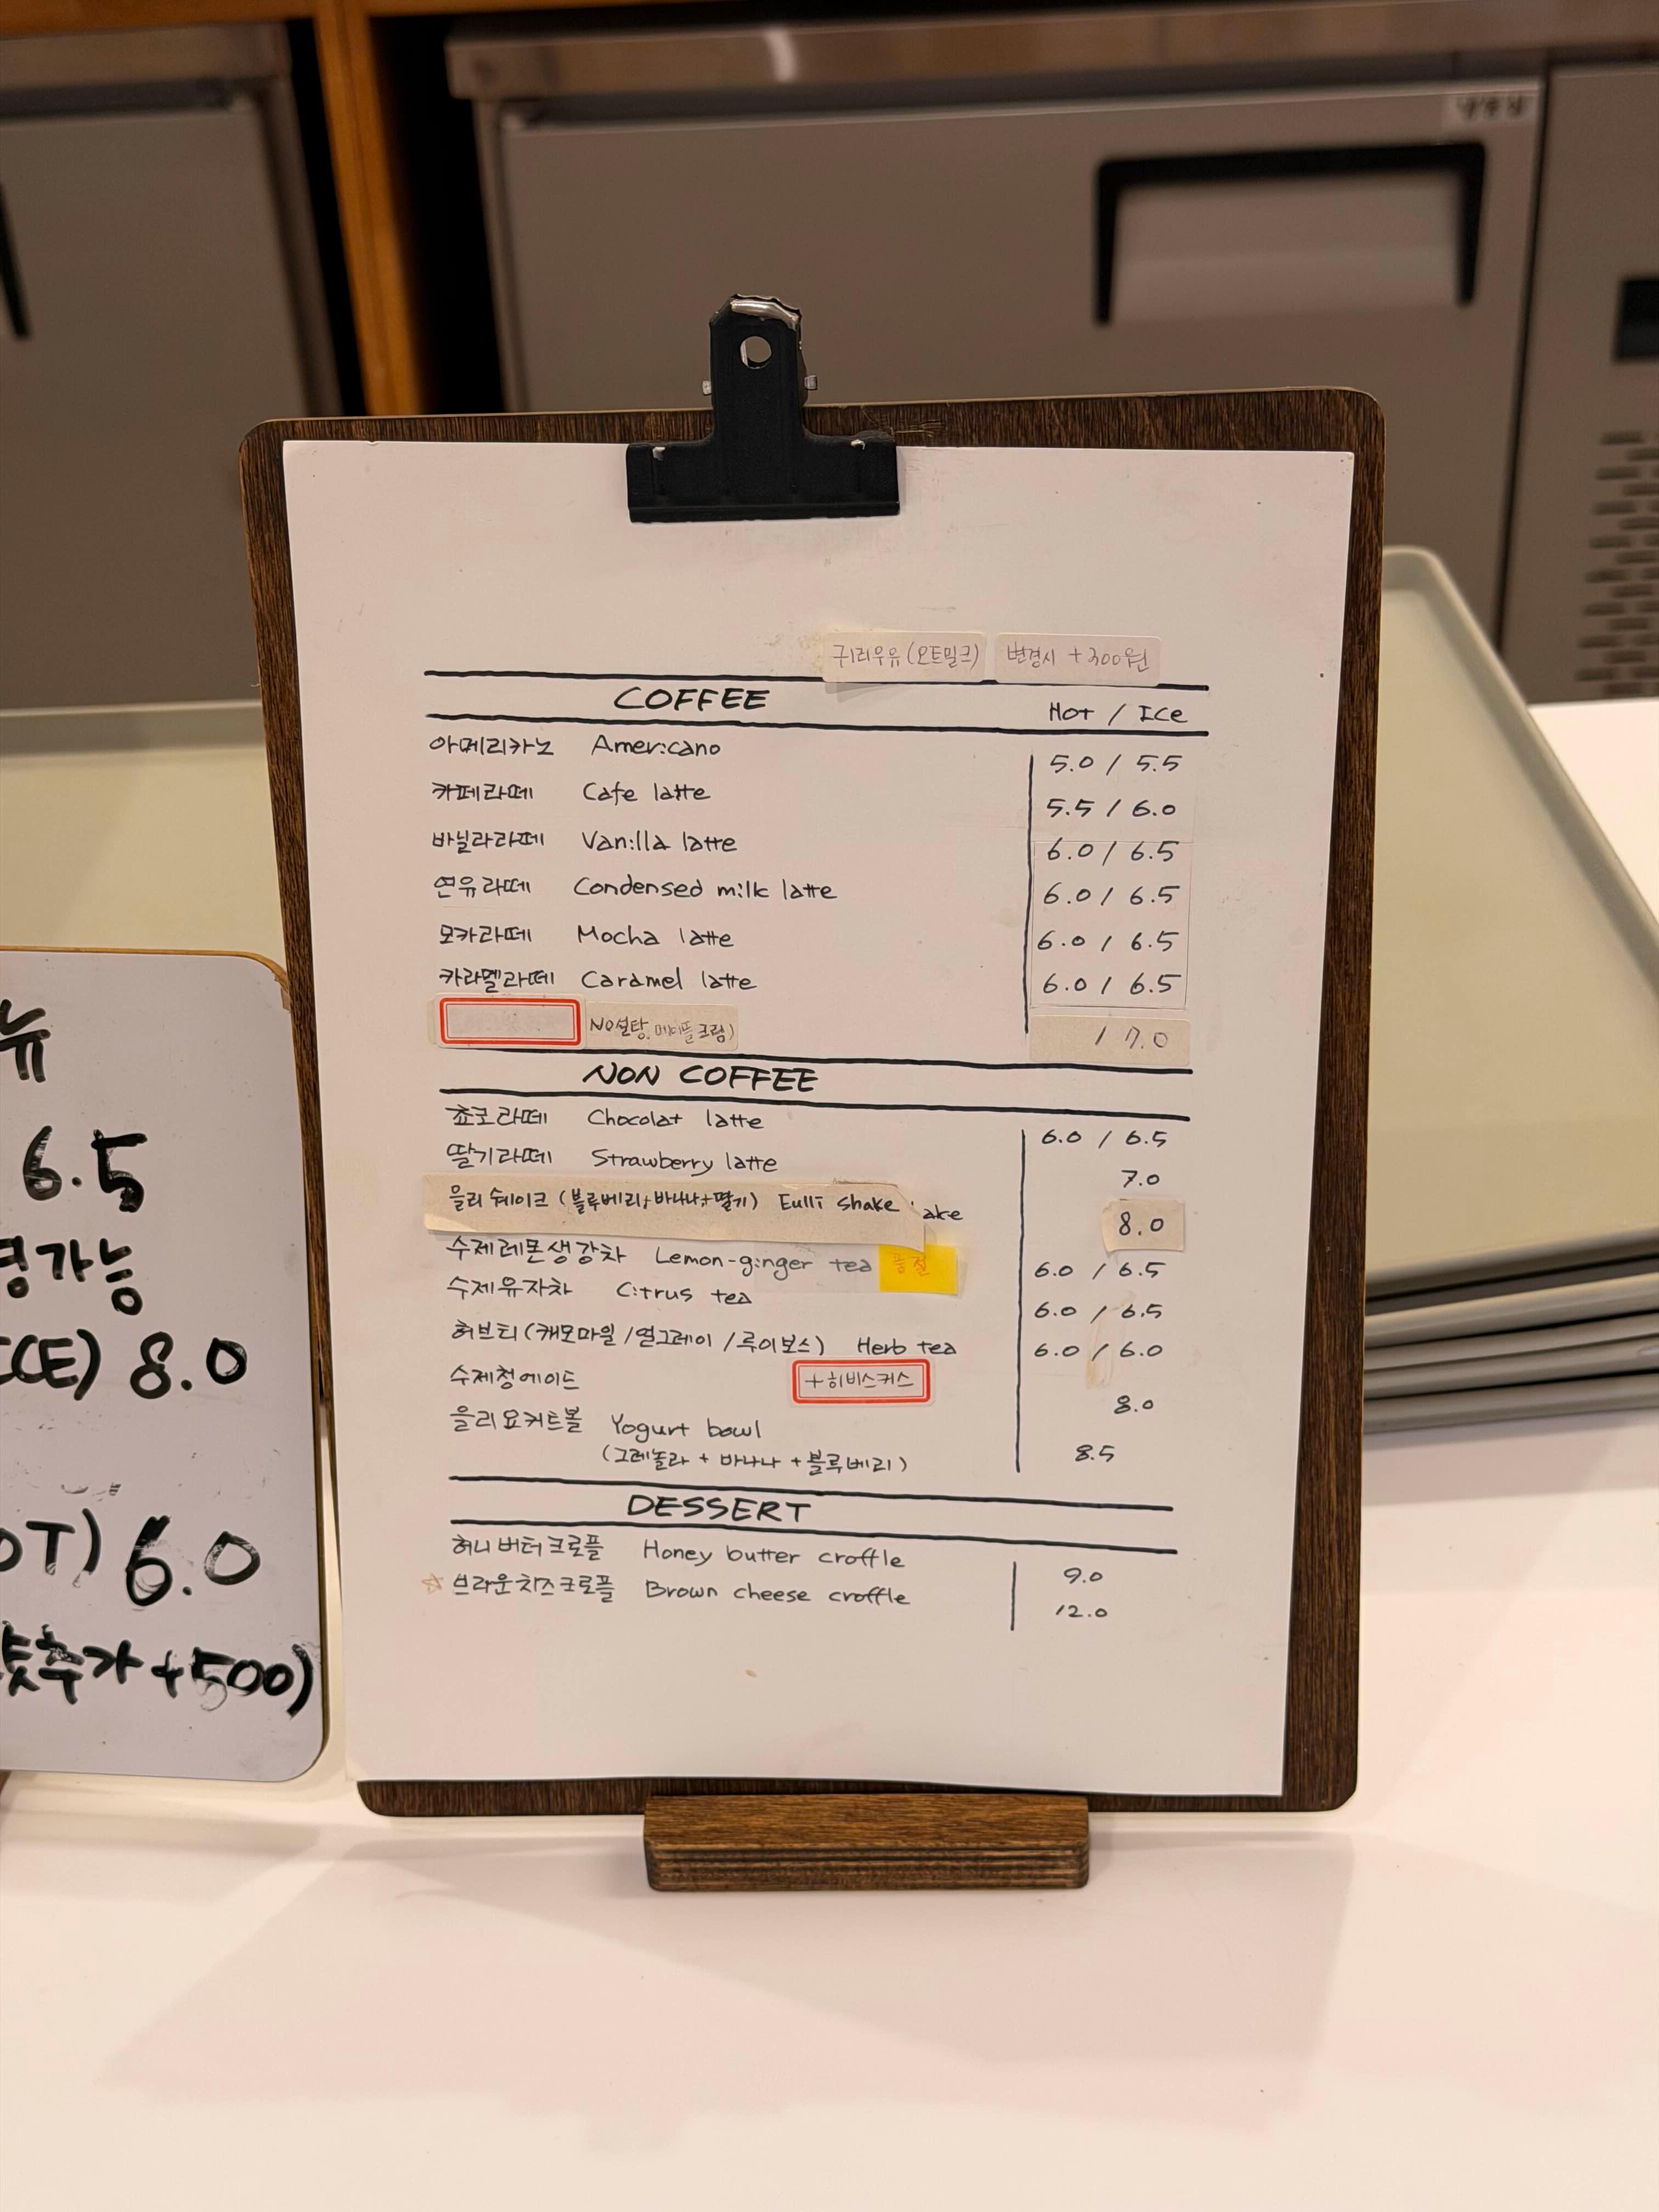 구리우유(오트밀크) 변경시 +300원
COFFEE Hot / Ice
아메리카노 Americano 5.0 / 5.5
카페라떼 Cafe latte 5.5 / 6.0
바닐라라떼 Vanilla latte 6.0 / 6.5
연유라떼 Condensed milk latte 6.0 / 6.5
모카라떼 Mocha latte 6.0 / 6.5
카라멜라떼 Caramel latte 6.0 / 6.5
NO설탕, 메이플크림) / 7.0
NON COFFEE
쵸코라떼 Chocolat latte 6.0 / 6.5
딸기라떼 Strawberry latte 7.0
을리쉐이크 (블루베리+바나나+딸기) Eulli shake ake 8.0
수제레몬생강차 Lemon-ginger tea 품절 6.0 / 6.5
수제유자차 Citrus tea 6.0 / 6.5
허브티(캐모마일/얼그레이/루이보스) Herb tea 6.0 / 6.0
수제청에이드 +히비스커스 8.0
을리요커트볼 Yogurt bowl
(그레놀라 + 바나나 + 블루베리) 8.5
DESSERT
허니버터크로플 Honey butter croffle 9.0
☆ 브라운치즈크로플 Brown cheese croffle 12.0
뉴
6.5
가능
ICE) 8.0
OT) 6.0
샷추가 +500)